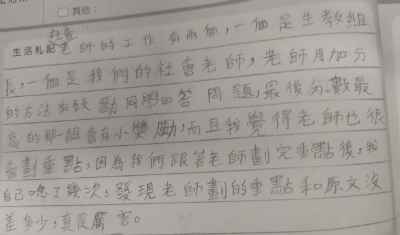 其他:
社會
生活札記 老師的工作有兩個,一個是生教組
長,一個是我們的社會老師,老師用加分
的方法鼓勵同學回答問題,最後分數最
高的那一組會有小獎勵,而且我覺得老師也很
會劃重點,因為我們跟著老師劃完重點後,我
自己唸了幾次,發現老師劃的重點和原文沒
差多少,真厲害。